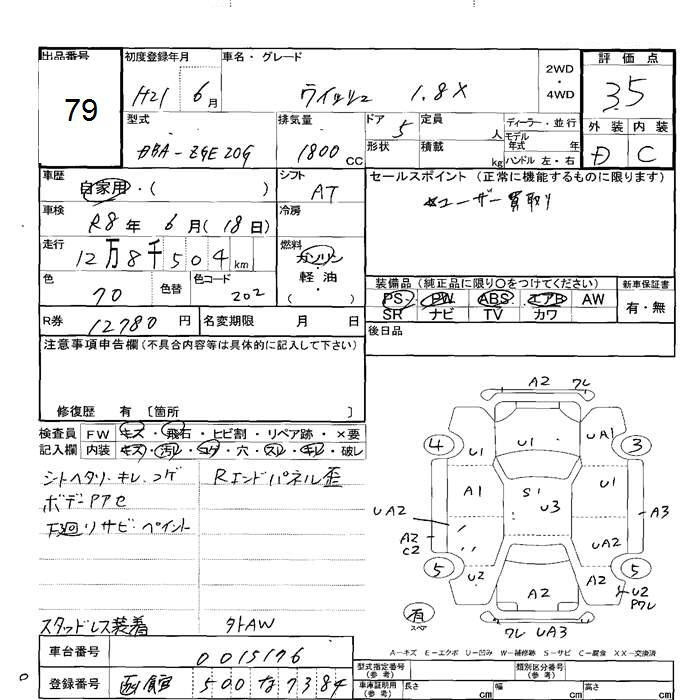 出品番号
79
初度登録年月
H21 6月
車名・グレード
ウイッシュ 1.8X
2WD
・
4WD
評価点
3.5
外装 内装
D C
型式
DBA-ZGE20G
排気量
1800CC
ドア 5
形状
定員 人
積載 kg
ディーラー・並行
モデル年式 年
ハンドル 左・右
車歴
自家用・( )
シフト
AT
セールスポイント(正常に機能するものに限ります)
ユーザー買取り
車検
R8年 6月(18日)
冷房
走行
12万8千504km
燃料
ガソリン
軽・油
( )
色
70
色替
色コード
202
装備品(純正品に限り○をつけてください)
新車保証書
PS PW ABS エアB AW
SR ナビ TV カワ
有・無
R券 12780円
名変期限 月 日
後日品
注意事項申告欄(不具合内容等は具体的に記入して下さい)
修復歴 有〔箇所 〕
検査員 FW キズ・飛石・ヒビ割・リペア跡・×要
記入欄 内装 キズ・汚レ・コゲ・穴・スレ・キレ・破レ
シートヘタリ・キレ・コゲ
Rエンドパネル歪
ボデーPアセ
下廻りサビ・ペイント
スタッドレス装着
外AW
A2 ワレ
4 U1 U1 UA1 3
A1 S1 U3 U1
UA2 A2 C2 UA2 A3
5 U2 A2 A2 5
U2 Pワレ
有 スペア
ワレ UA3
A-キズ E-エクボ U-凹み W-補修跡 S-サビ C-腐食 XX-交換済
車台番号 0015176
登録番号 函館 500 な 7384
型式指定番号(参考)
類別区分番号(参考)
車庫証明用(参考) 長さ cm 幅 cm 高さ cm